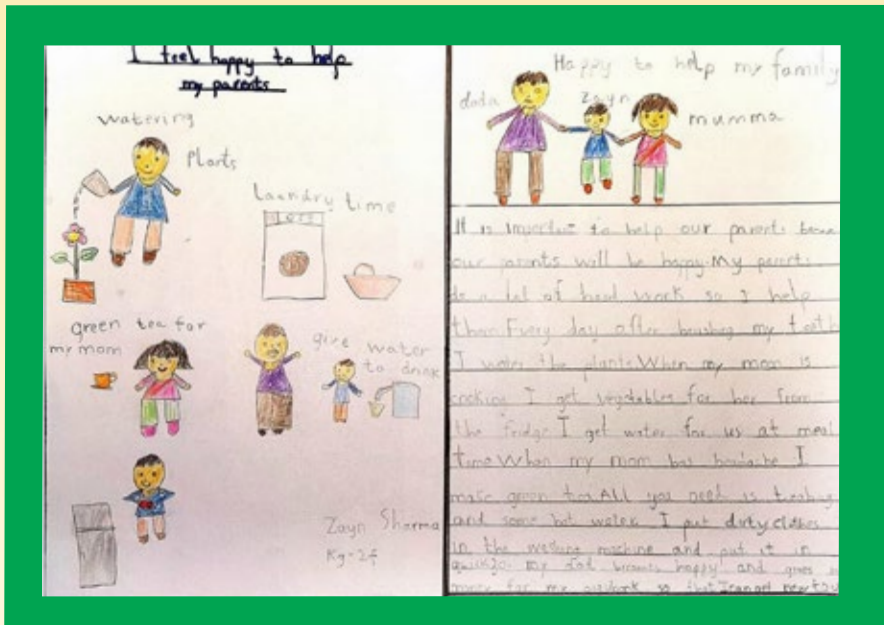 I feel happy to help
my parents
watering
Plants
Laundry time
green tea for
my mom
give water
to drink
Zayn Sharma
Kg-2
Happy to help my family
dada
Zayn
mumma
It is important to help our parents
our parents will be happy. My parents
do a lot of work so I help
them. Every day after brushing my teeth
I water the plants. When my mom is
cooking I get vegetables for her from
the fridge. I get water for us at meal
time. When my mom has headache I
make green tea. All you need is
and some hot water. I put dirty clothes
in the machine and put it in
my dad becomes happy and gives
for my so that I can